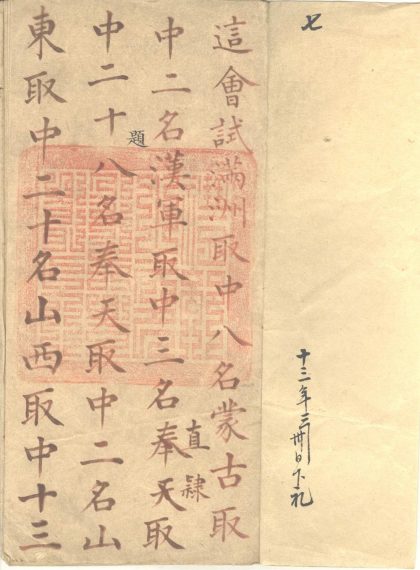 七
十三年三日下礼
這會試滿洲取中八名蒙古取
直隸
中二名漢軍取中三名奉天取
題
中二十八名奉天取中二名山
東取中二十名山西取中十三